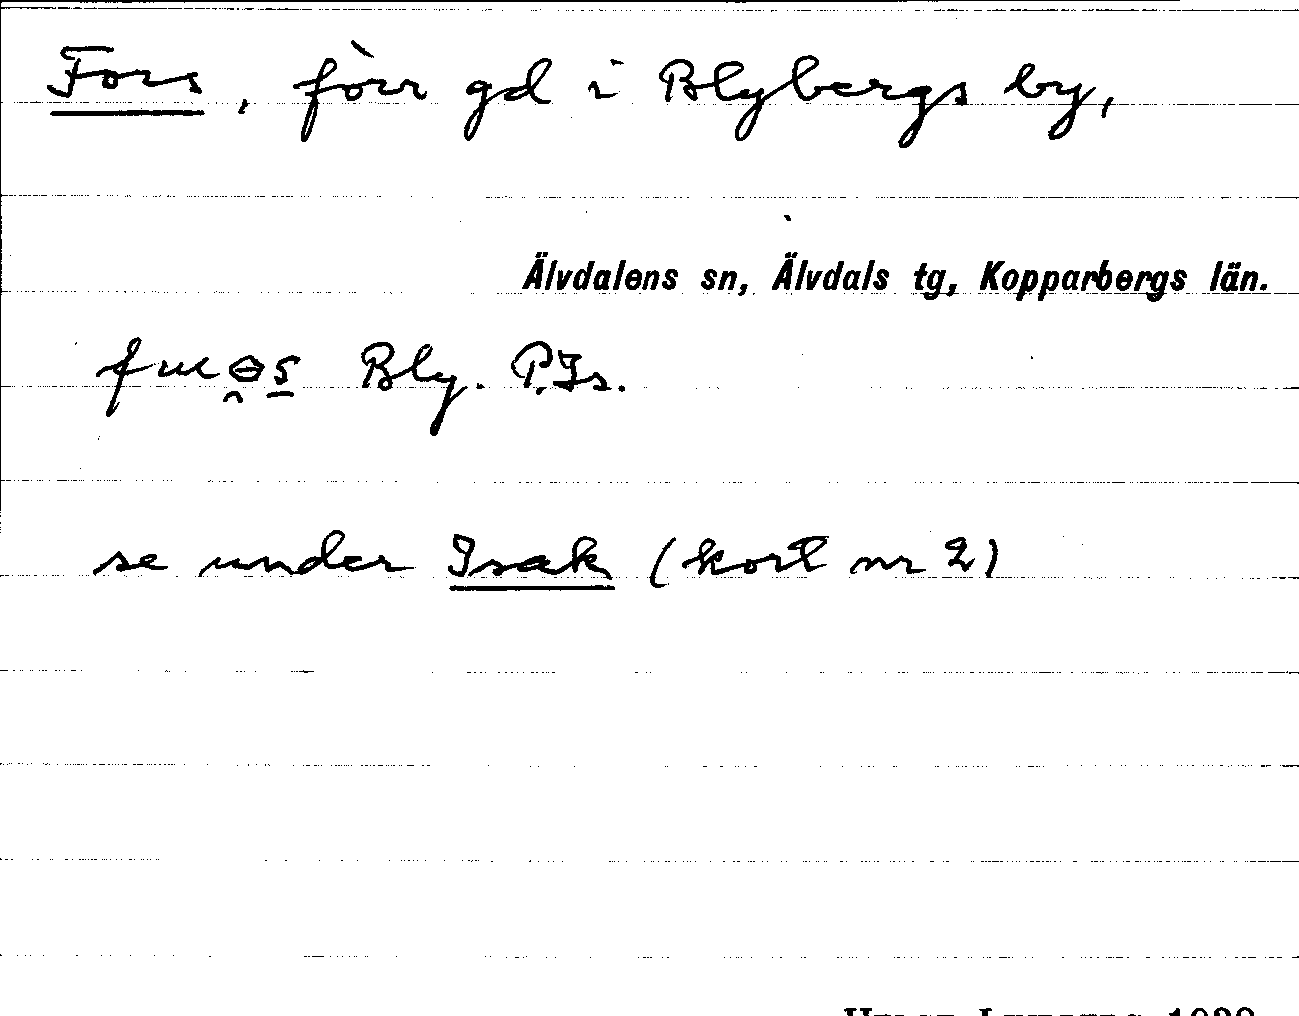 Fors, förr gd i Blybergs by,
Älvdalens sn, Älvdals tg, Kopparbergs län.
Bly. P.Is.
se under Isak (kort nr 2)